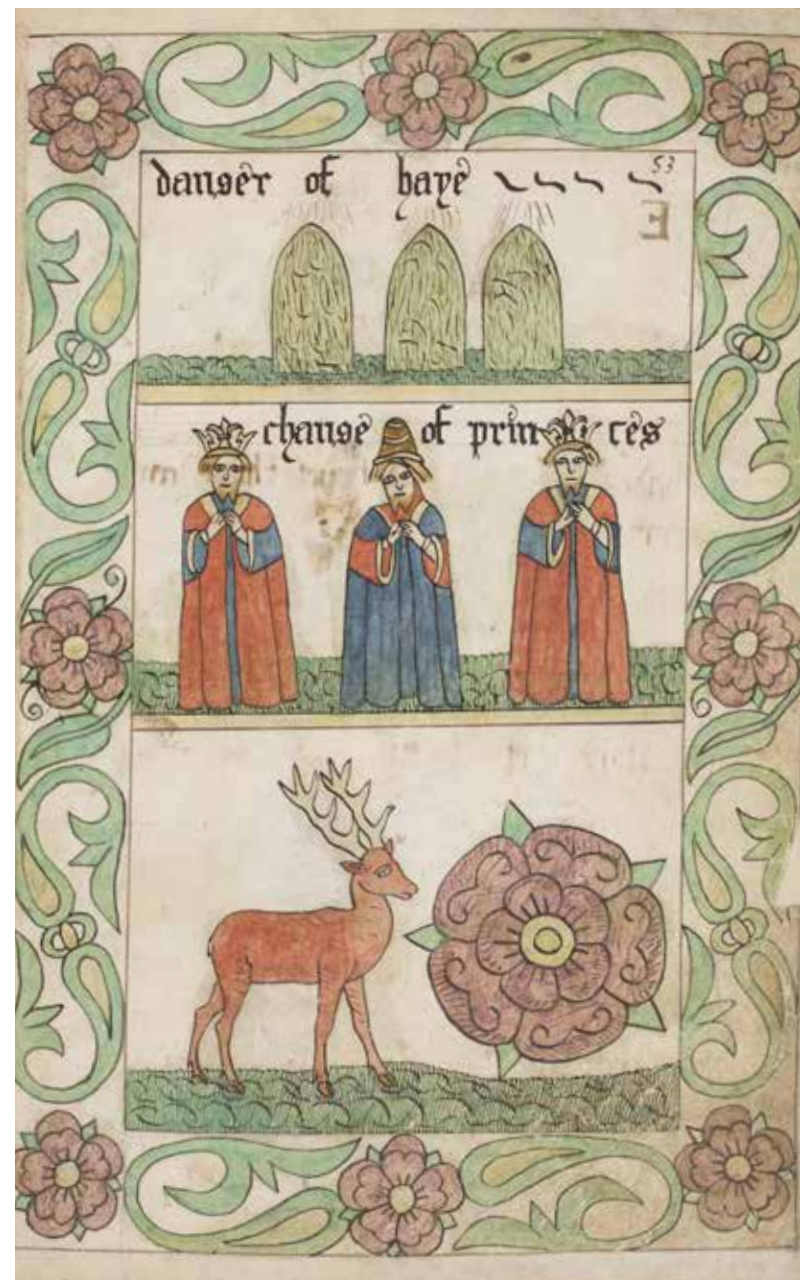 danger of haye
53
change of prin ces